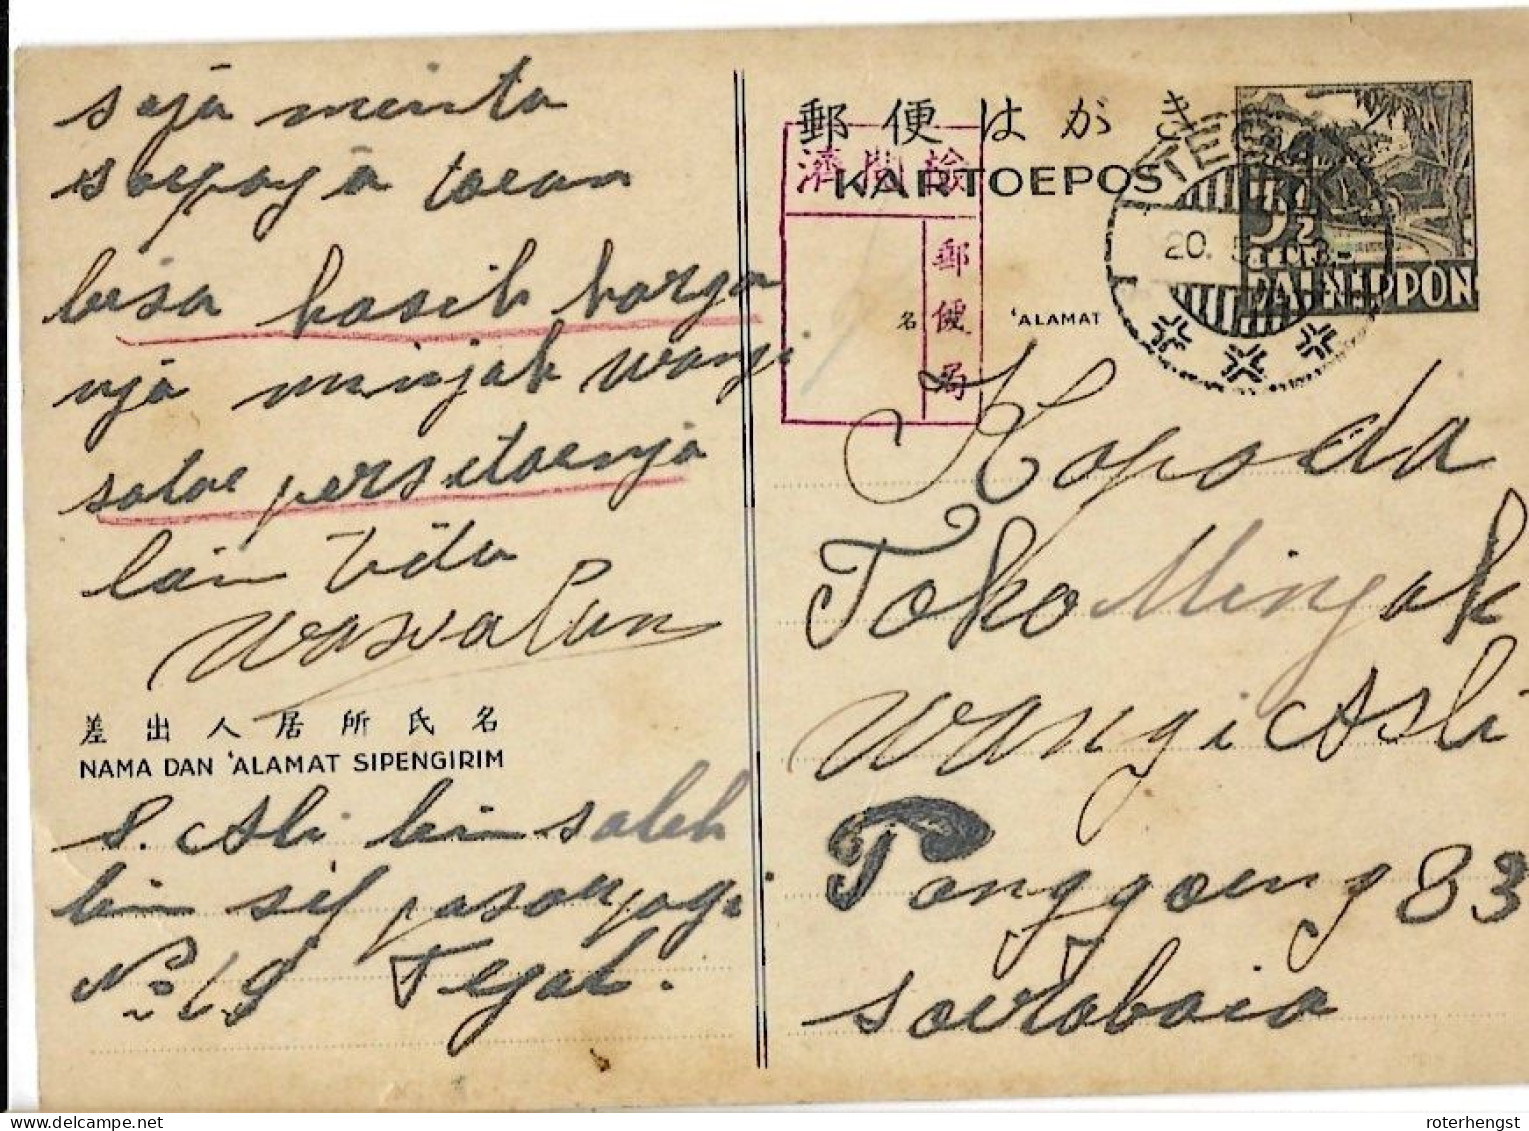 saja minta
soepaja toean
bisa kasih harga
nja minjak wangi
satoe persatoenja
lain tida
wasalam
差出人居所氏名
NAMA DAN 'ALAMAT SIPENGIRIM
S. Ali bin saleh
bin sif pasar pagi
No 19 Tegal.
郵便はがき
KARTOEPOS
検閲済
郵便局
名
'ALAMAT
TEGAL
20. 5. 03
3½
CENT
DAI NIPPON
Kepada
Toko Minjak
wangi Asli
Panggoeng 83
Soerabaia
roterhengst